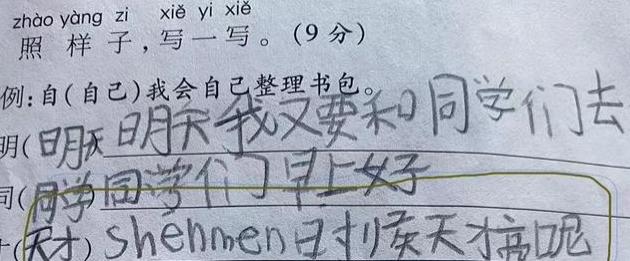 zhào yàng zi xiě yi xiě
照样子，写一写。（9分）
例：自（自己）我会自己整理书包。
明（明天）明天我又要和同学们去
同（同学）同学们早上好
（天才）shenmen时候天才高呢